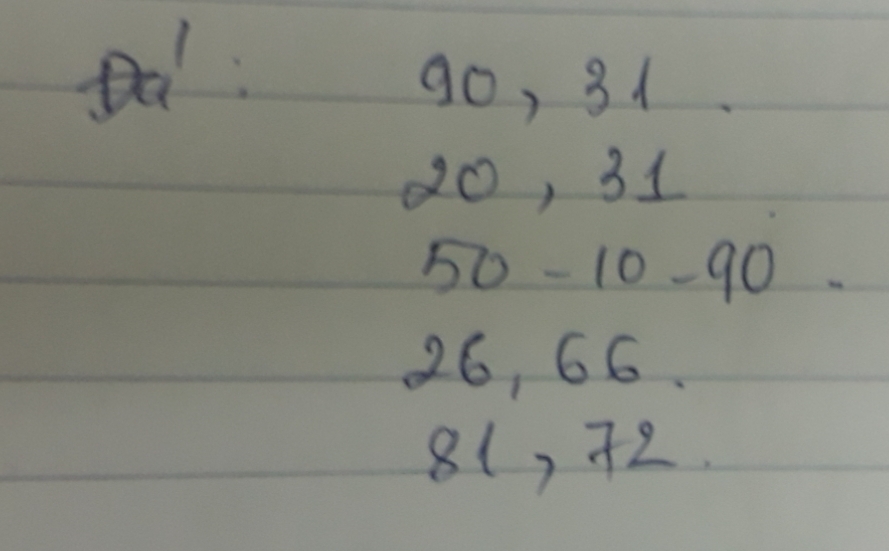 Đá: 90, 31.
20, 31
50-10-90.
26, 66.
81, 72.